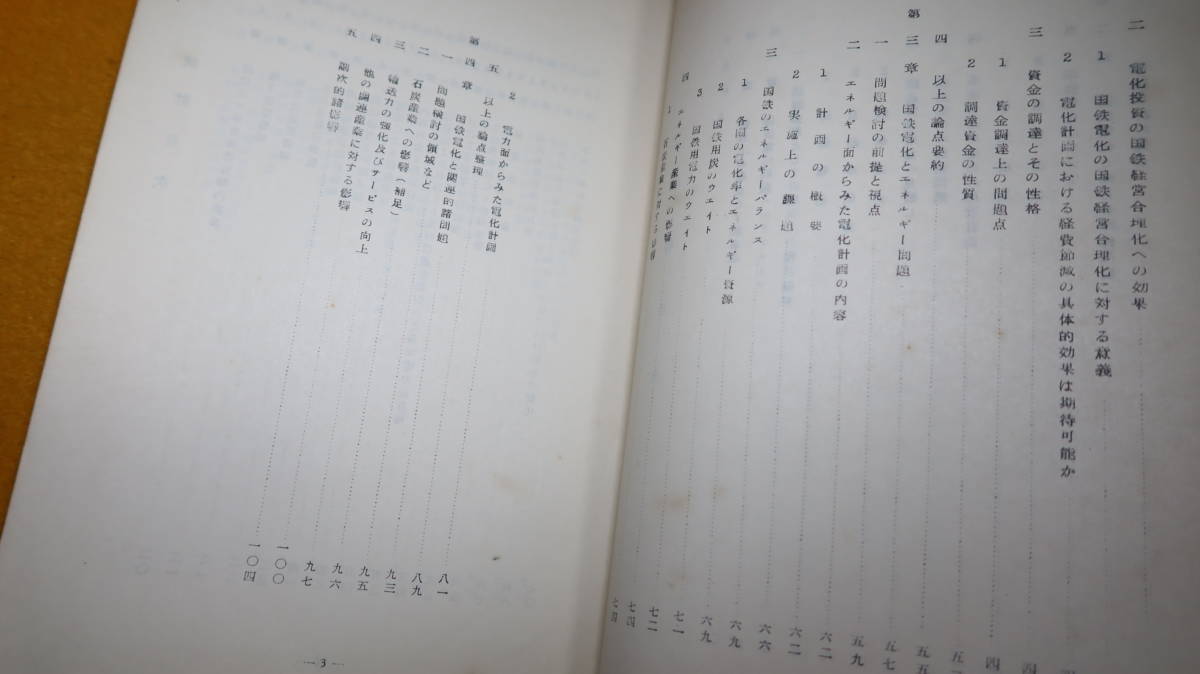 二 電化投資の国鉄経営合理化への効果
1 国鉄電化の国鉄経営合理化に対する意義
2 電化計画における経費節減の具体的効果は期待可能か
三 資金の調達とその性格 四
1 資金調達上の問題点 四
2 調達資金の性質
四 以上の論点要約 五五
第三章 国鉄電化とエネルギー問題 五七
一 問題検討の前提と視点 五七
二 エネルギー面からみた電化計画の内容 五九
1 計画の概要 六二
2 実施上の課題 六二
三 国鉄のエネルギーバランス 六六
1 各国の電化率とエネルギー資源 六九
2 国鉄用炭のウエイト 六九
3 国鉄用電力のウエイト 七一
四 エネルギー産業への影響 七二
1 石炭産業に対する影響 七四
2 電力面からみた電化計画 八一
五 以上の論点整理 八九
第四章 国鉄電化と関連的諸問題 九三
一 問題検討の領域など 九五
二 石炭産業への影響(補足) 九六
三 輸送力の強化及びサービスの向上 九七
四 他の関連産業に対する影響 一〇〇
五 副次的諸影響 一〇四
— 3 —